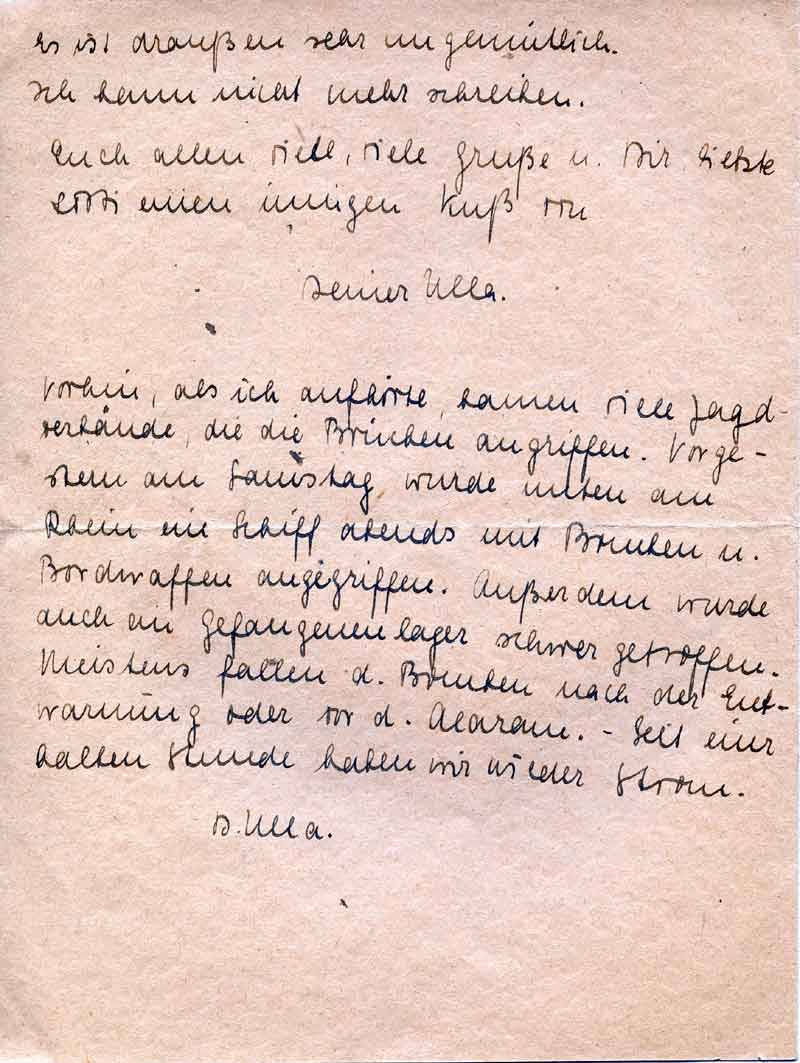 Es ist draußen sehr ungemütlich.
Ich kann nicht mehr schreiben.
Euch allen viele, viele Grüße u. Dir liebste
Lotti einen innigen Kuß von
Deiner Ulla.
Vorhin, als ich aufhörte, kamen viele Jagd-
verbände, die die Brücken angriffen. Vorge-
stern am Samstag wurde unten am
Rhein ein Schiff abends mit Bomben u.
Bordwaffen angegriffen. Außerdem wurde
auch ein Gefangenenlager schwer getroffen.
Meistens fallen d. Bomben nach der Ent-
warnung oder vor d. Alarm. - Seit einer
halben Stunde haben wir wieder Strom.
D. Ulla.